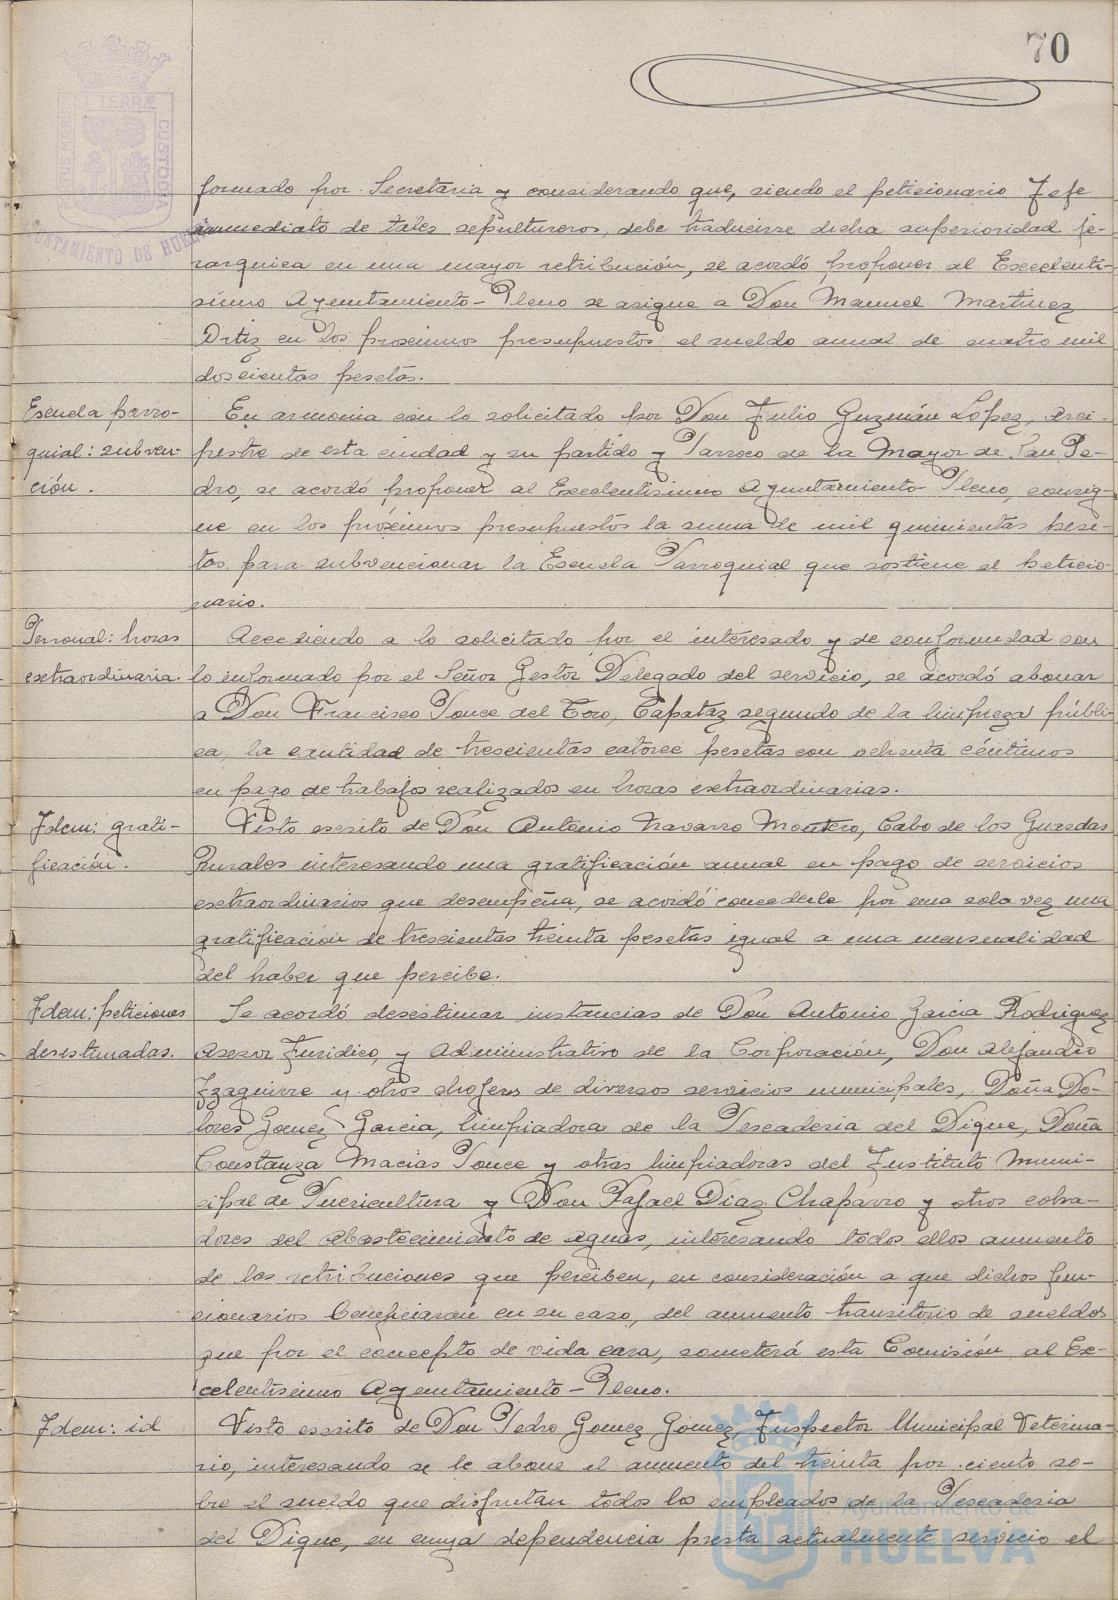 70
formado por Secretaria y considerando que, siendo el peticionario Jefe
inmediato de tales sepultureros, debe traducirse dicha superioridad je-
rarquica en una mayor retribución, se acordó proponer al Excelenti-
simo Ayuntamiento-Pleno se asigne a Don Manuel Martinez
Ortiz en los proximos presupuestos el sueldo anual de cuatro mil
doscientas pesetas.
Escuela parro-
quial: subven-
ción.
En armonia con lo solicitado por Don Julio Guzmán López, Arci-
preste de esta ciudad y su partido y Parroco de la Mayor de San Pe-
dro, se acordó proponer al Excelentisimo Ayuntamiento-Pleno, consig-
ne en los próximos presupuestos la suma de mil quinientas pese-
tas para subvencionar la Escuela Parroquial que sostiene el peticio-
nario.
Personal: horas
extraordinaria.
Accediendo a lo solicitado por el interesado y de conformidad con
lo informado por el Señor Gestor Delegado del servicio, se acordó abonar
a Don Francisco Ponce del Toro, Capataz segundo de la limpieza públi-
ca, la cantidad de trescientas catorce pesetas con ochenta céntimos
en pago de trabajos realizados en horas extraordinarias.
Idem: grati-
ficación.
Visto escrito de Don Antonio Navarro Montero, Cabo de los Guardas
Rurales interesando una gratificación anual en pago de servicios
extraordinarios que desempeña, se acordó concederle por una sola vez una
gratificación de trescientas treinta pesetas igual a una mensualidad
del haber que percibe.
Idem: peticiones
desestimadas.
Se acordó desestimar instancias de Don Antonio Garcia Rodriguez
Asesor Juridico, y Administrativo de la Corporación, Don Alejandro
Izaguirre y otros chofers de diversos servicios municipales, Doña Do-
lores Gomez Garcia, limpiadora de la Pescaderia del Dique, Doña
Constanza Macias Ponce y otras limpiadoras del Instituto Muni-
cipal de Puericultura y Don Rafael Diaz Chaparro y otros cobra-
dores del Abastecimiento de Aguas, interesando todos ellos aumento
de las retribuciones que perciben, en consideración a que dichos fun-
cionarios beneficiarán en su caso, del aumento transitorio de sueldos
que por el concepto de vida cara, someterá esta Comisión al Ex-
celentisimo Ayuntamiento-Pleno.
Idem: id
Visto escrito de Don Pedro Gomez Gómez, Inspector Municipal Veterina-
rio, interesando se le abone el aumento del treinta por ciento so-
bre el sueldo que disfrutan todos los empleados de la Pescaderia
del Dique, en cuya dependencia presta actualmente servicio el
TERRÆ
CUSTODIA
AYUNTAMIENTO DE HUELVA
Ayuntamiento de
HUELVA